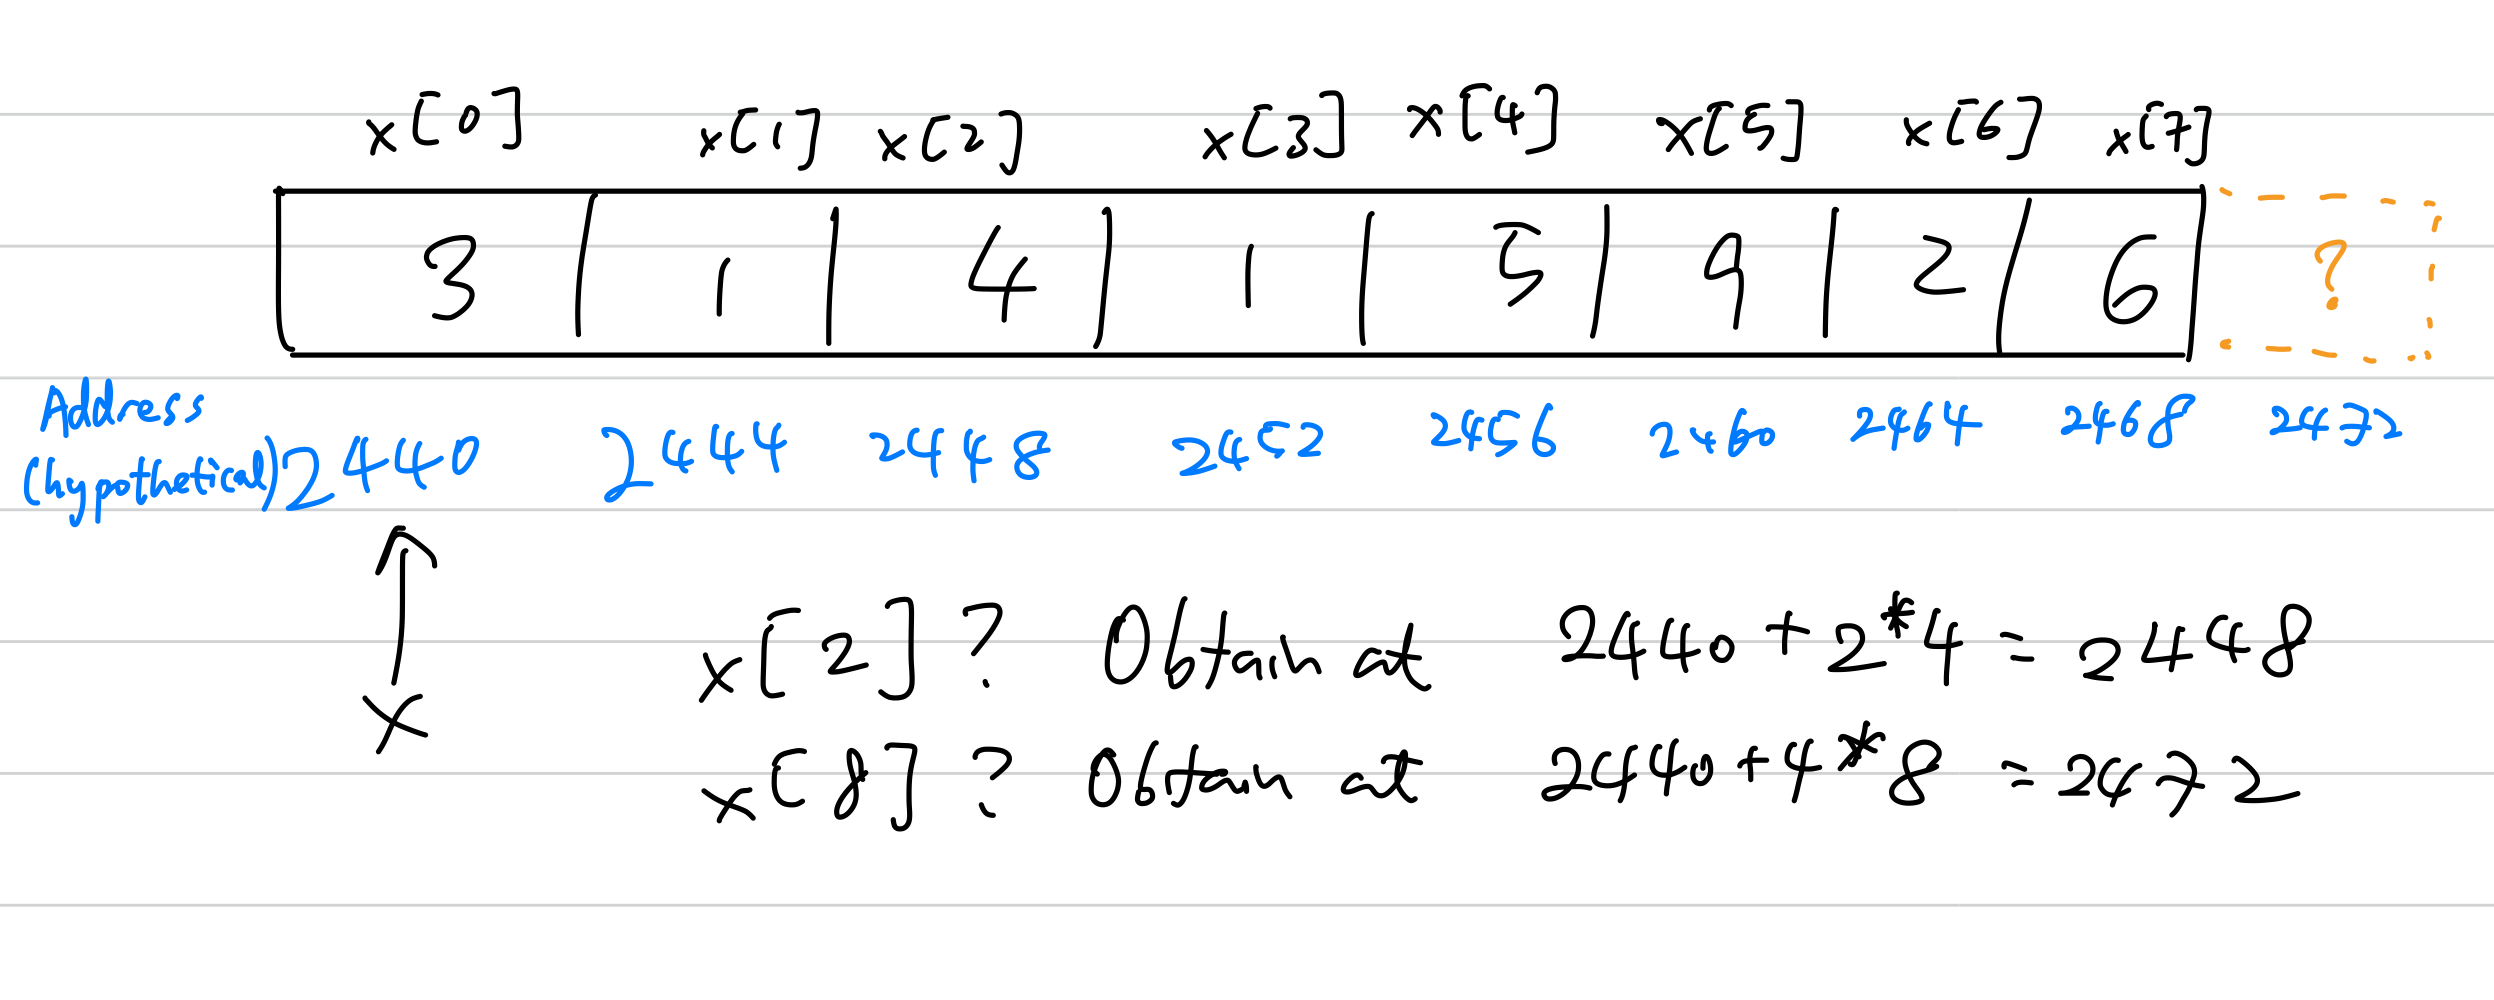 x[0] x[1] x[2] x[3] x[4] x[5] x[6] x[7]
3 | 1 | 4 | 1 | 5 | 9 | 2 | 6 ?
Address
(hypothetical) 2440 2444 2448 2452 2456 2460 2464 2468 2472
x
x[2]? Obtain at 2440 + 2*4 = 2448
x[8]? Obtain at 2440 + 4*8 = 2472